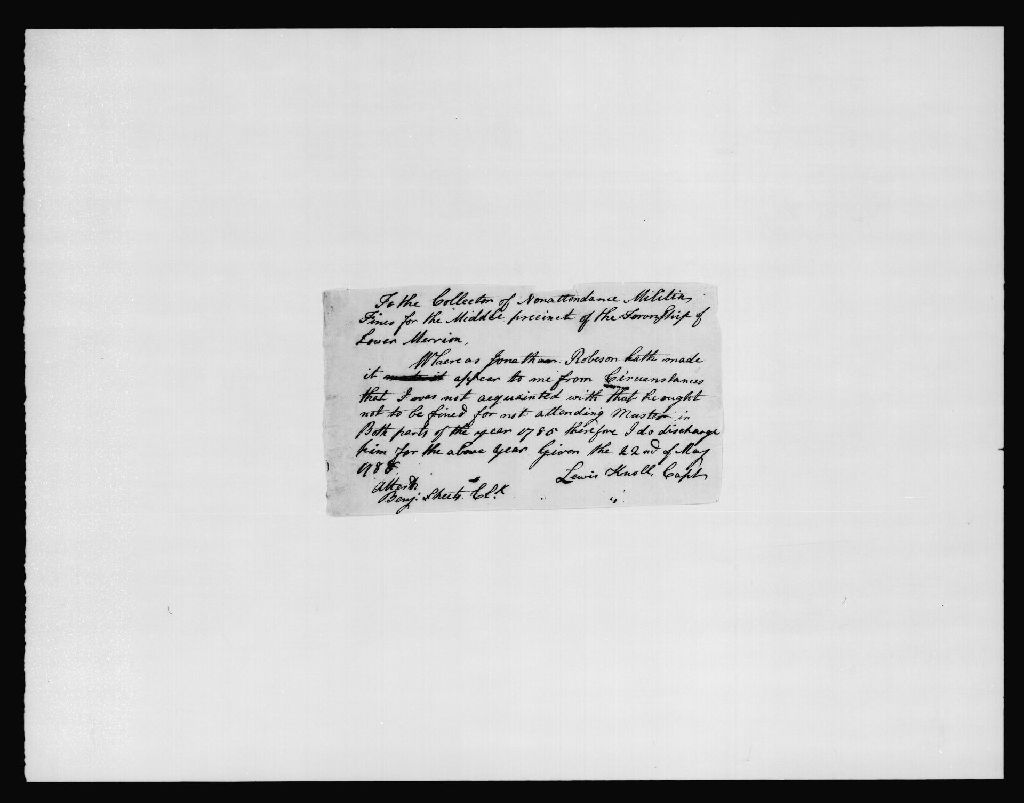 To the Collector of Nonattendance Melitia
Fines for the Middle precinct of the Township of
Lower Merrion,
Whereas Jonathan Robeson hathe made
it appear to me from Circumstances
that I was not acquainted with that he ought
not to be fined for not attending Muster in
Both parts of the year 1785 therefore I do discharge
him for the above year Given the 22nd of May
1788
Lewis Knoll Capt
Attest
Benj. Sheets Clk